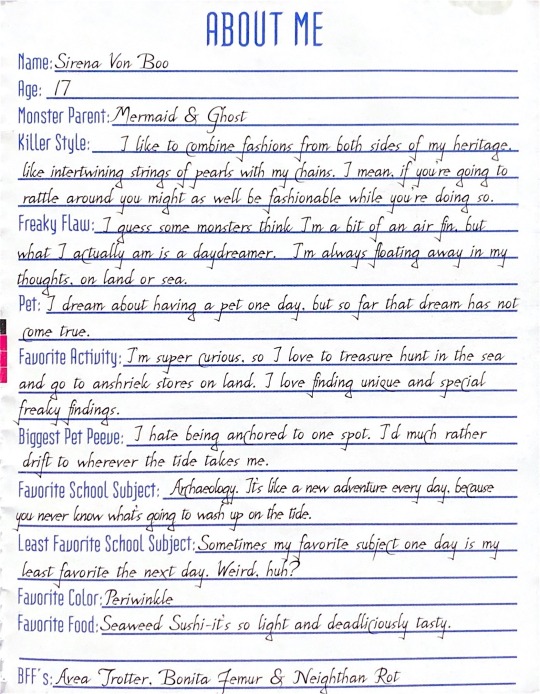 ABOUT ME
Name: Sirena Von Boo
Age: 17
Monster Parent: Mermaid & Ghost
Killer Style: I like to combine fashions from both sides of my heritage,
like intertwining strings of pearls with my chains. I mean, if you're going to
rattle around you might as well be fashionable while you're doing so.
Freaky Flaw: I guess some monsters think I'm a bit of an air fin, but
what I actually am is a daydreamer. I'm always floating away in my
thoughts, on land or sea.
Pet: I dream about having a pet one day, but so far that dream has not
come true.
Favorite Activity: I'm super curious, so I love to treasure hunt in the sea
and go to anshriek stores on land. I love finding unique and special
freaky findings.
Biggest Pet Peeve: I hate being anchored to one spot. I'd much rather
drift to wherever the tide takes me.
Favorite School Subject: Archaeology. It's like a new adventure every day, because
you never know what's going to wash up on the tide.
Least Favorite School Subject: Sometimes my favorite subject one day is my
least favorite the next day. Weird, huh?
Favorite Color: Periwinkle
Favorite Food: Seaweed Sushi-it's so light and deadliciously tasty.
BFF's: Avea Trotter, Bonita Femur & Neighthan Rot